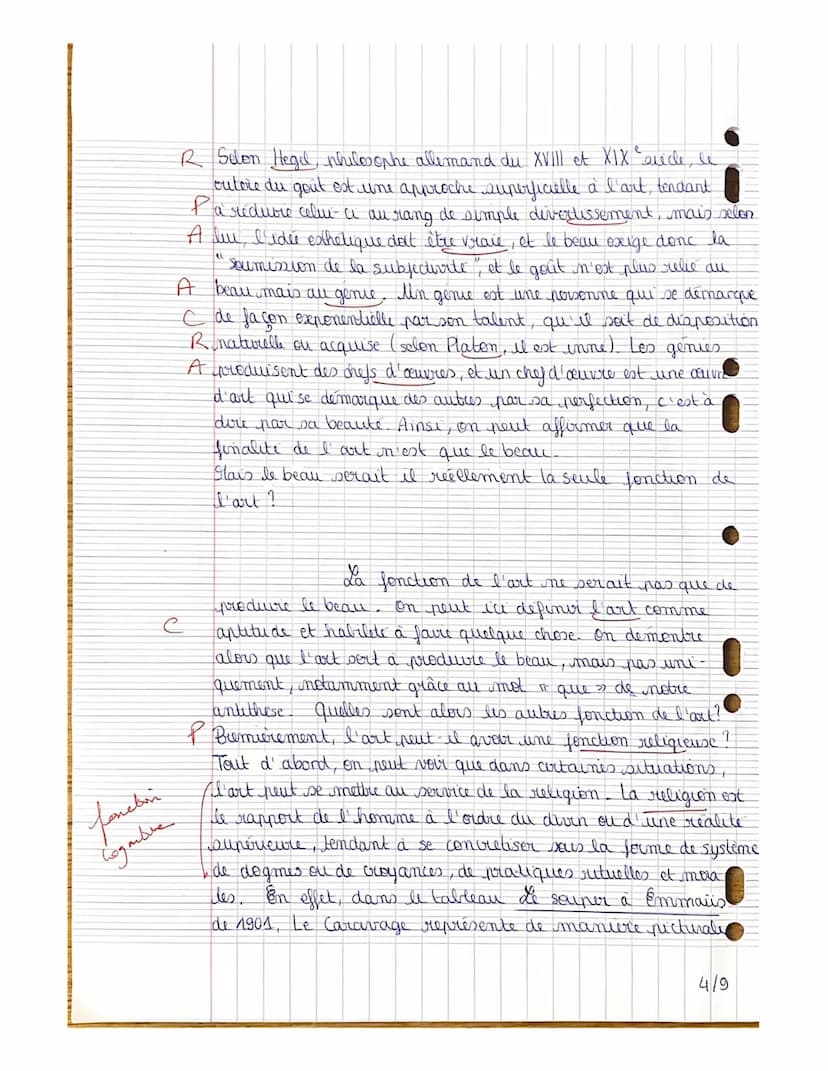 R Selon Hegel, philosophe allemand du XVIII et XIXe siècle, le
critère du goût est une approche superficielle à l'art, tendant
P à réduire celui-ci au rang de simple divertissement, mais selon
A lui, l'idée esthétique doit être vraie, et le beau exige donc la
"soumission de la subjectivité", et le goût n'est plus relié au
A beau mais au génie. Un génie est une personne qui se démarque
C de façon exponentielle par son talent, qu'il soit de disposition
R naturelle ou acquise (selon Platon, il est inné). Les génies
A produisent des chefs d'œuvres, et un chef d'œuvre est une œuvre
d'art qui se démarque des autres par sa perfection, c'est à
dire par sa beauté. Ainsi, on peut affirmer que la
finalité de l'art n'est que le beau.
Mais le beau serait il réellement la seule fonction de
l'art ?
La fonction de l'art ne serait pas que de
produire le beau. On peut ici définir l'art comme
C aptitude et habileté à faire quelque chose. On démontre
alors que l'art sert à produire le beau, mais pas uni-
quement, notamment grâce au mot « que » de notre
antithèse. Quelles sont alors les autres fonction de l'art ?
P Premièrement, l'art peut-il avoir une fonction religieuse ?
Tout d'abord, on peut voir que dans certaines situations,
l'art peut se mettre au service de la religion. La religion est
fonction
le rapport de l'homme à l'ordre du divin ou d'une réalité
cognitive
supérieure, tendant à se concrétiser sous la forme de système
de dogmes ou de croyances, de pratiques rituelles et mora
les. En effet, dans le tableau Le souper à Emmaüs
de 1901, Le Caravage représente de manière picturale
4/9